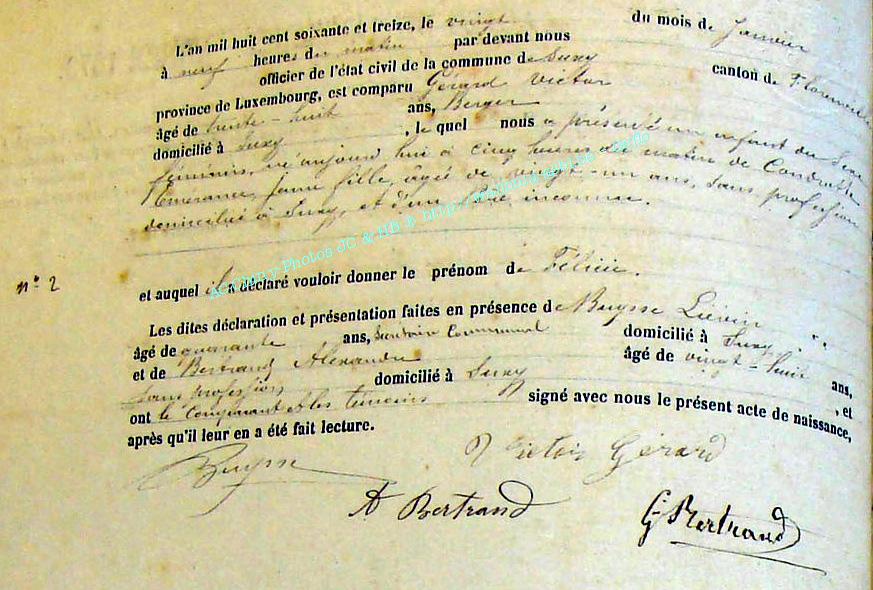 L'an mil huit cent soixante et treize, le vingt du mois de Janvier
à neuf heures du matin par devant nous
officier de l'état civil de la commune de Suxy canton de Florenville
province de Luxembourg, est comparu Gérard Victor
âgé de trente-huit ans, Berger
domicilié à Suxy, le quel nous a présenté un enfant du Sexe
féminin, né aujourd'hui à cinq heures du matin de
Emerance, jeune fille, agée de vingt-un ans, Sans profession
domiciliée à Suxy, et d'un père inconnu.
n° 2
et auquel il a déclaré vouloir donner le prénom de Félicie.
Les dites déclaration et présentation faites en présence de Buysse Liévin
âgé de quarante ans, Secrétaire Communal domicilié à Suxy
et de Bertrand Alexandre âgé de vingt-huit ans,
Sans profession domicilié à Suxy, et
ont le Comparant et les témoins signé avec nous le présent acte de naissance,
après qu'il leur en a été fait lecture.
Buysse Victor Gérard
A Bertrand G Bertrand
Photos JC & HB © http://